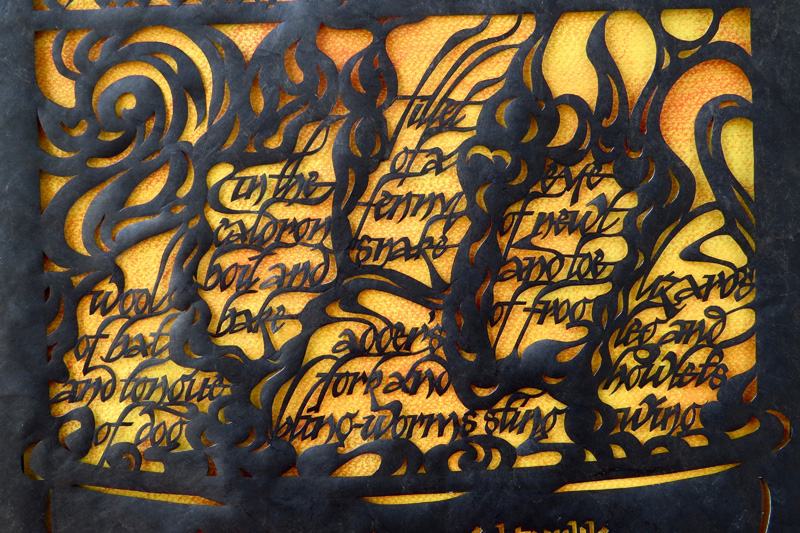 fillet
of a
fenny
snake
in the
caldron
boil and
bake
eye
of newt
and toe
of frog
wool
of bat
and tongue
of dog
adder's
fork and
blind-worms sting
lizards
leg and
howlet's
wing